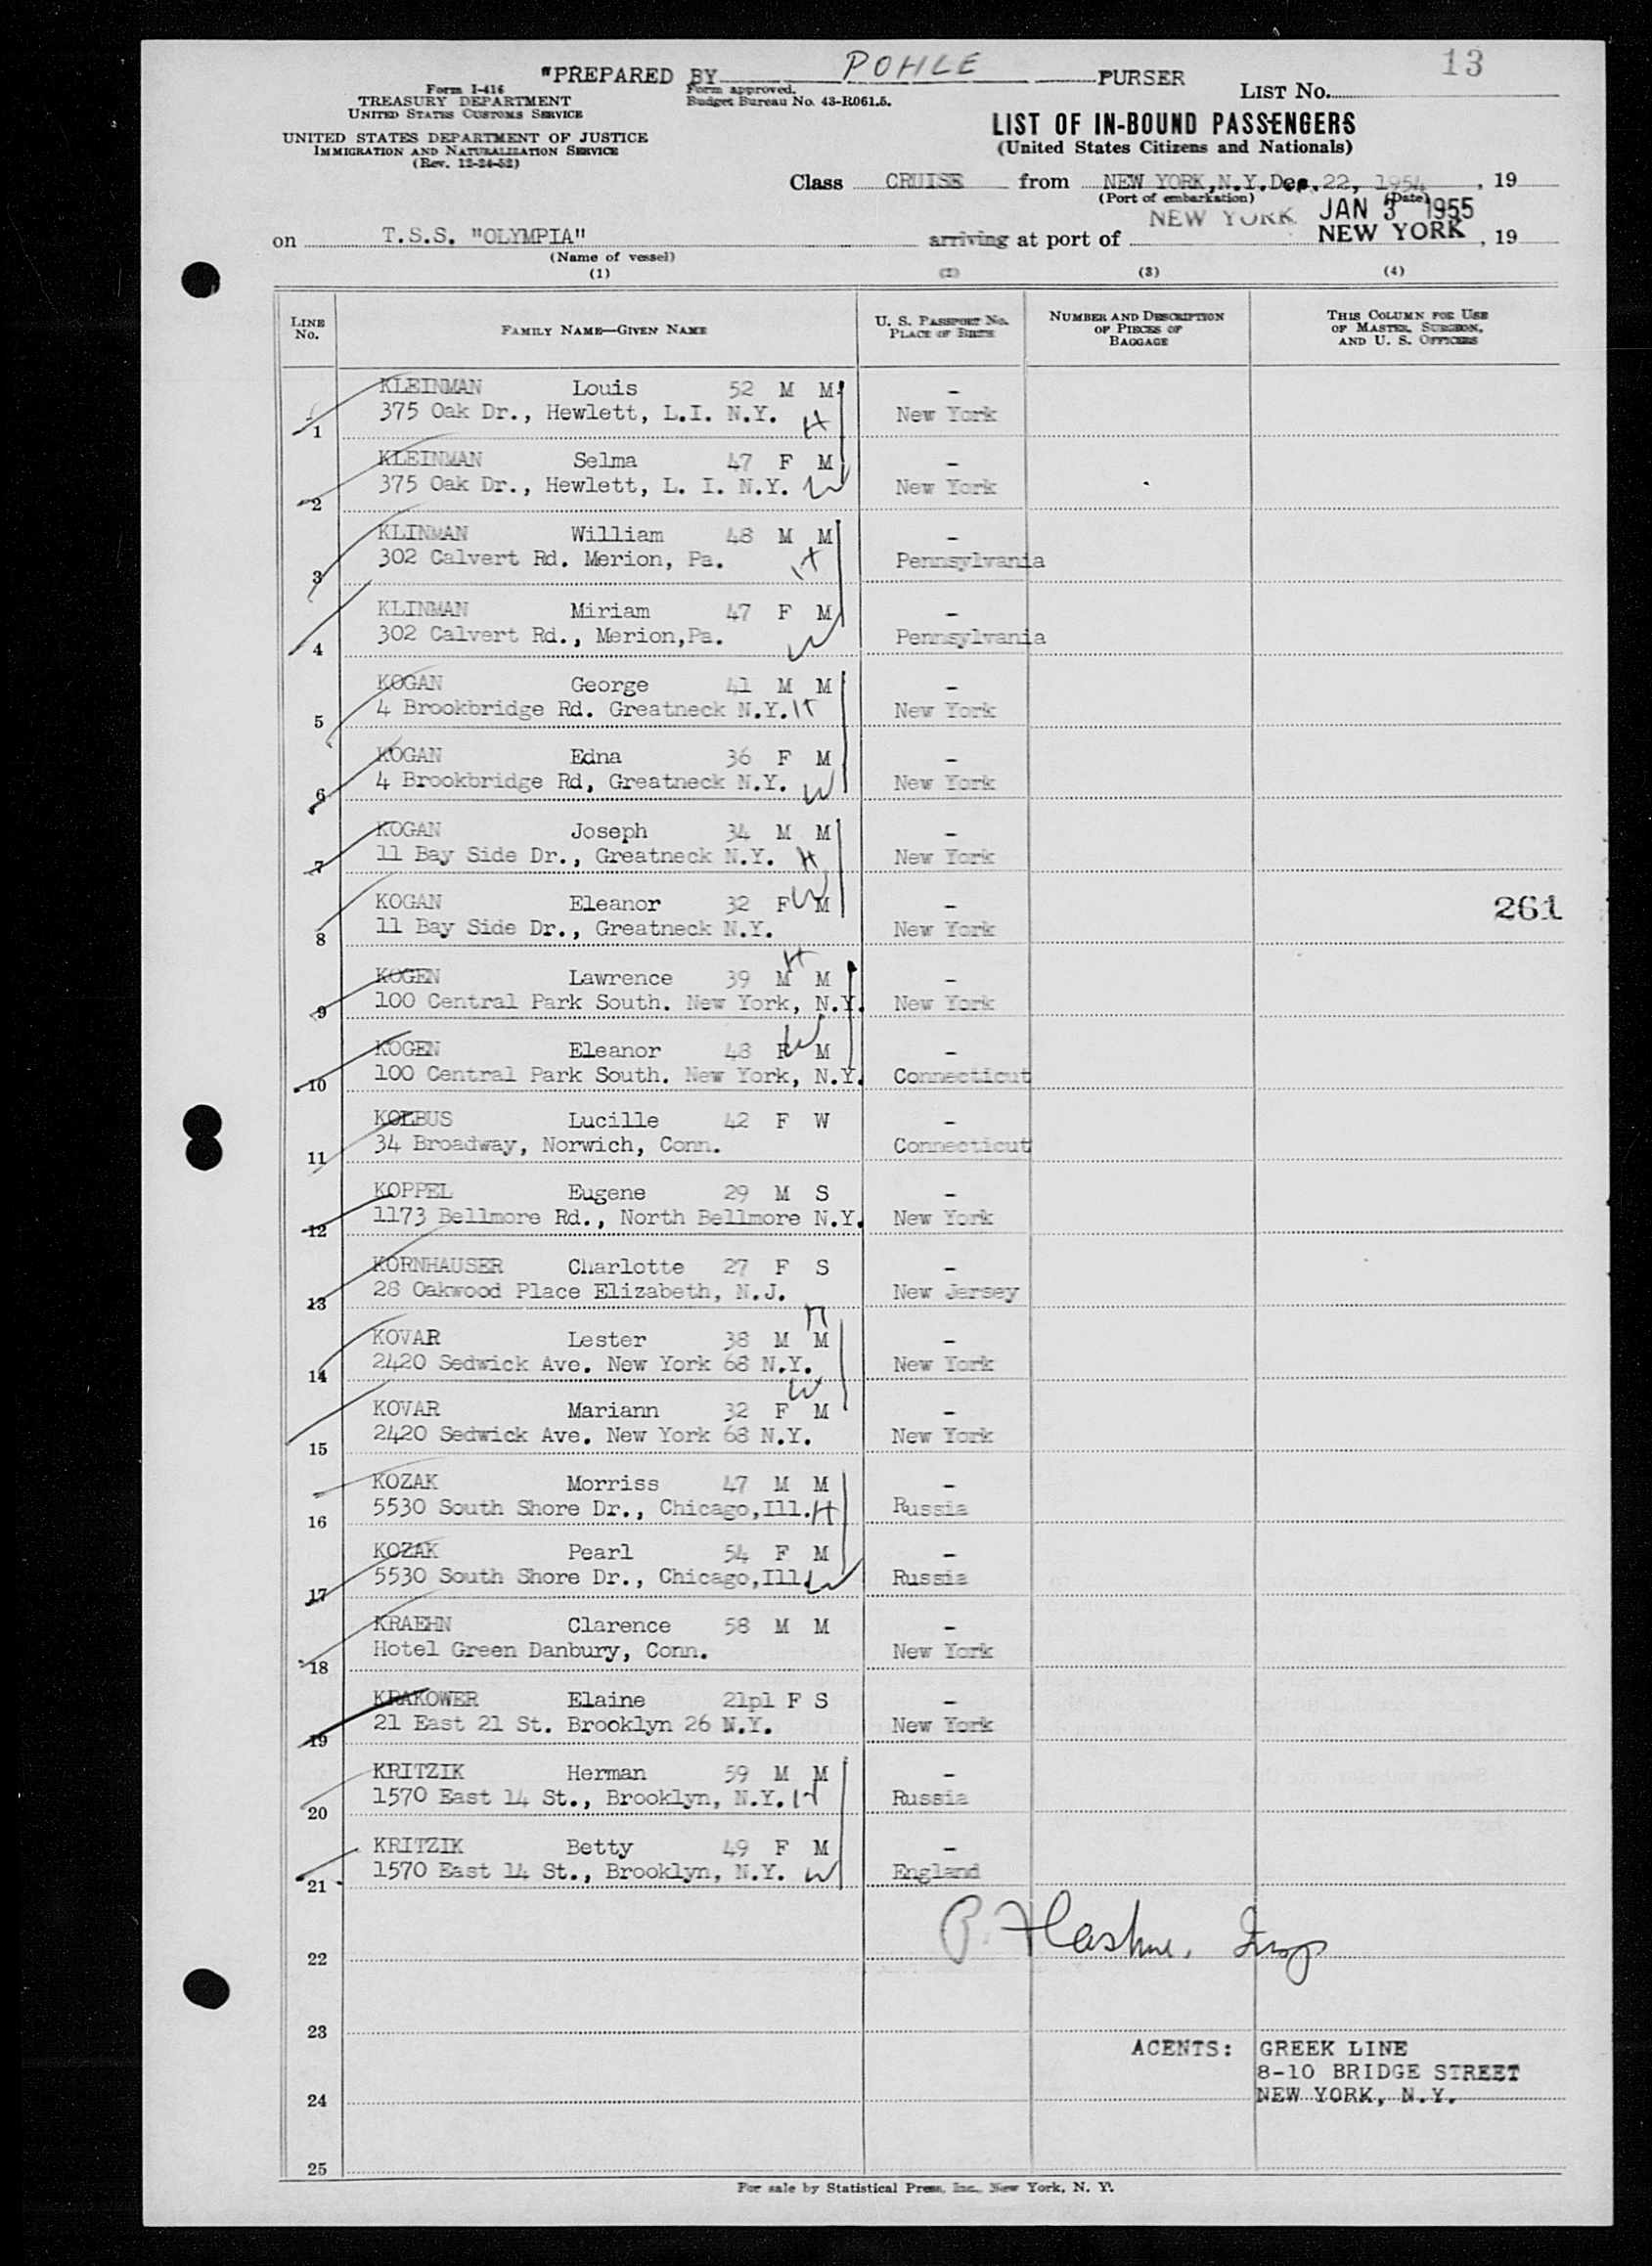 13
"PREPARED BY POHLE PURSER
Form I-416
TREASURY DEPARTMENT
UNITED STATES CUSTOMS SERVICE
Form approved.
Budget Bureau No. 43-R061.5.
LIST NO.
UNITED STATES DEPARTMENT OF JUSTICE
IMMIGRATION AND NATURALIZATION SERVICE
(Rev. 12-24-52)
LIST OF IN-BOUND PASSENGERS
(United States Citizens and Nationals)
Class CRUISE from NEW YORK,N.Y.Dec.22, 1954, 19
(Port of embarkation) (Date)
NEW YORK JAN 3 1955
on T.S.S. "OLYMPIA" arriving at port of NEW YORK, 19
(Name of vessel)
(1) (2) (3) (4)
LINE NO. FAMILY NAME—GIVEN NAME U. S. PASSPORT NO. PLACE OF BIRTH NUMBER AND DESCRIPTION OF PIECES OF BAGGAGE THIS COLUMN FOR USE OF MASTER, SURGEON, AND U. S. OFFICERS
KLEINMAN Louis 52 M M -
1 375 Oak Dr., Hewlett, L.I. N.Y. H New York
KLEINMAN Selma 47 F M -
2 375 Oak Dr., Hewlett, L. I. N.Y. W New York
KLINMAN William 48 M M -
3 302 Calvert Rd. Merion, Pa. H Pennsylvania
KLINMAN Miriam 47 F M -
4 302 Calvert Rd., Merion,Pa. W Pennsylvania
KOGAN George 41 M M -
5 4 Brookbridge Rd. Greatneck N.Y. H New York
KOGAN Edna 36 F M -
6 4 Brookbridge Rd, Greatneck N.Y. W New York
KOGAN Joseph 34 M M -
7 11 Bay Side Dr., Greatneck N.Y. H New York
KOGAN Eleanor 32 F W M - 261
8 11 Bay Side Dr., Greatneck N.Y. New York
H
KOGEN Lawrence 39 M M -
9 100 Central Park South. New York, N.Y. New York
W
KOGEN Eleanor 48 F M -
10 100 Central Park South. New York, N.Y. Connecticut
KOLBUS Lucille 42 F W -
11 34 Broadway, Norwich, Conn. Connecticut
KOPPEL Eugene 29 M S -
12 1173 Bellmore Rd., North Bellmore N.Y. New York
KORNHAUSER Charlotte 27 F S -
13 28 Oakwood Place Elizabeth, N.J. New Jersey
H
KOVAR Lester 38 M M -
14 2420 Sedwick Ave. New York 68 N.Y. New York
W
KOVAR Mariann 32 F M -
15 2420 Sedwick Ave. New York 68 N.Y. New York
KOZAK Morriss 47 M M -
16 5530 South Shore Dr., Chicago,Ill. H Russia
KOZAK Pearl 54 F M -
17 5530 South Shore Dr., Chicago,Ill. W Russia
KRAEHN Clarence 58 M M -
18 Hotel Green Danbury, Conn. New York
KRAKOWER Elaine 21pl F S -
19 21 East 21 St. Brooklyn 26 N.Y. New York
KRITZIK Herman 59 M M -
20 1570 East 14 St., Brooklyn, N.Y. H Russia
KRITZIK Betty 49 F M -
21 1570 East 14 St., Brooklyn, N.Y. W England
22
23
ACENTS: GREEK LINE
8-10 BRIDGE STREET
24 NEW YORK, N.Y.
25
For sale by Statistical Press, Inc., New York, N. Y.